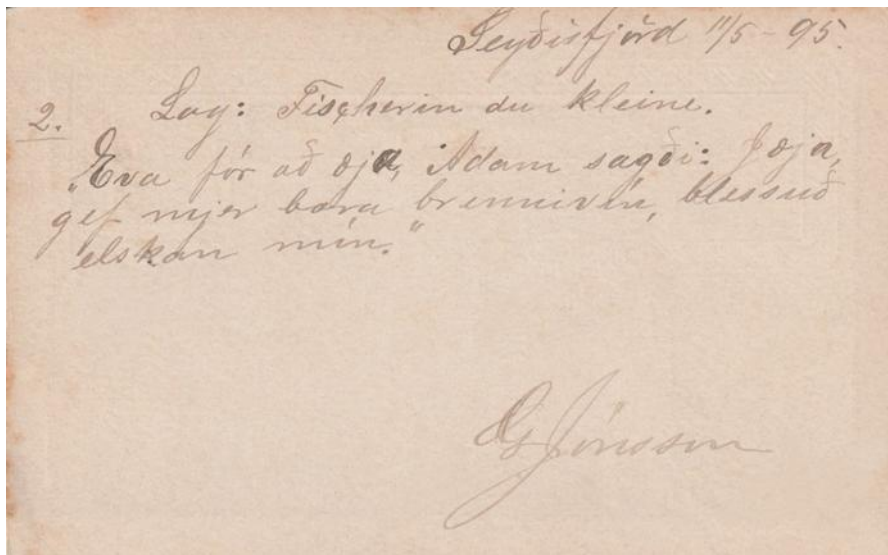 Seyðisfjörd 11/5 - 95.
2. Lag: Fischerin du kleine.
„Eva fór að æja, Adam sagði: Jæja,
gef mjer bara brennivín, blessuð
elskan mín.“
G Jónsson